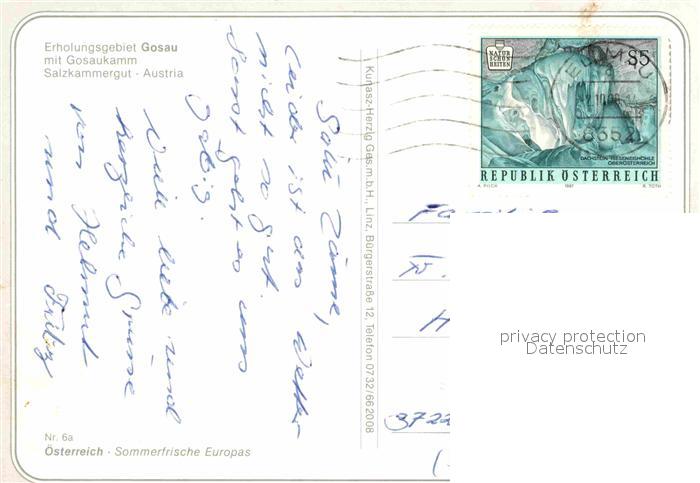 Erholungsgebiet Gosau
mit Gosaukamm
Salzkammergut - Austria
Salü Zäme,
leider ist das Wetter
nicht so gut.
Sonst gehts uns
Viele liebe und
herzliche Grüsse
von Helmut
und
Nr. 6a
Österreich - Sommerfrische Europas
Kunasz-Herzig Ges.m.b.H., Linz, Bürgerstraße 12, Telefon 0732/662008
NATUR
SCHÖN
HEITEN
S5
DACHSTEIN-RIESENEISHÖHLE
OBERÖSTERREICH
REPUBLIK ÖSTERREICH
A. PILCH 1987 R. TOTH
Familie
H
3722
privacy protection
Datenschutz